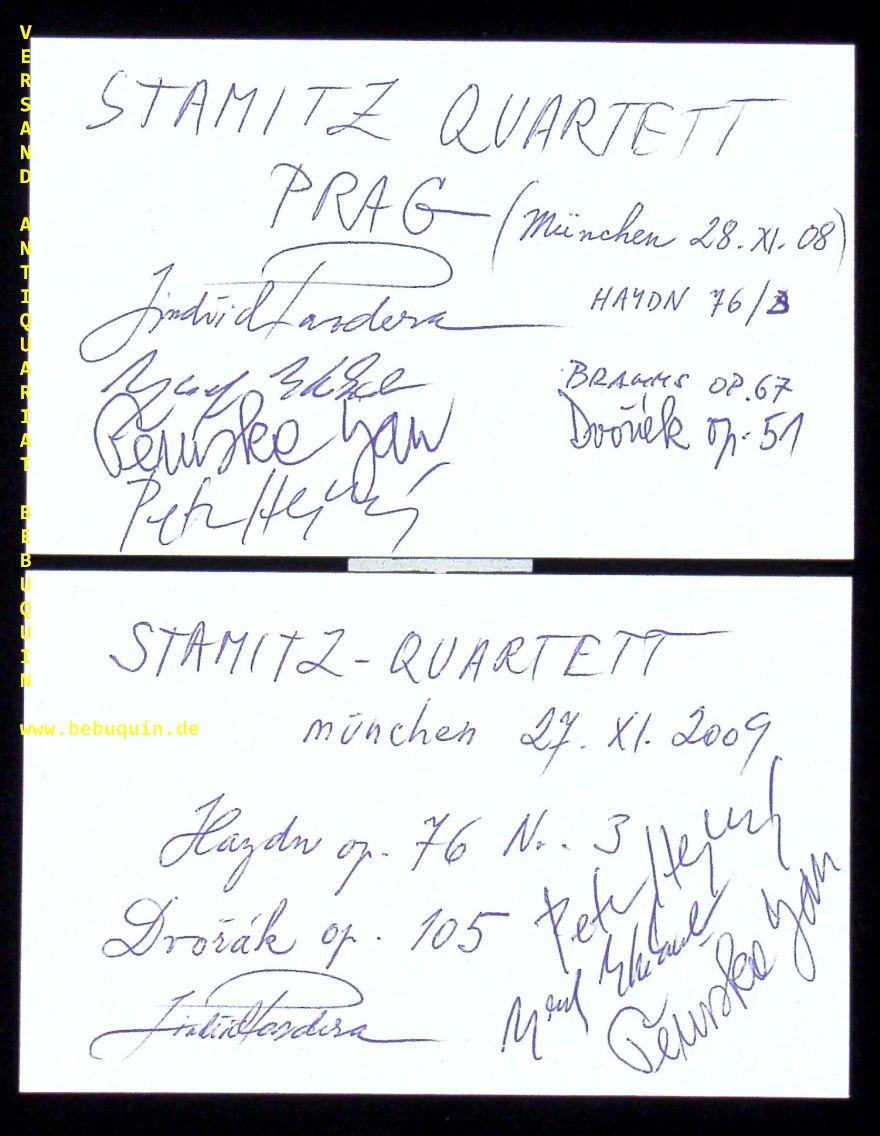 VERSAND ANTIQUARIAT BEBUQUIN
www.bebuquin.de
STAMITZ QUARTETT
PRAG (München 28.XI.08)
HAYDN 76/3
Jindřich Pazdera
BRAHMS OP.67
Dvořák op. 51
Pěruška Jan
Petr Hejný
STAMITZ-QUARTETT
münchen 27. XI. 2009
Haydn op. 76 Nr. 3
Dvořák op. 105
Petr Hejný
Jindřich Pazdera
Pěruška Jan